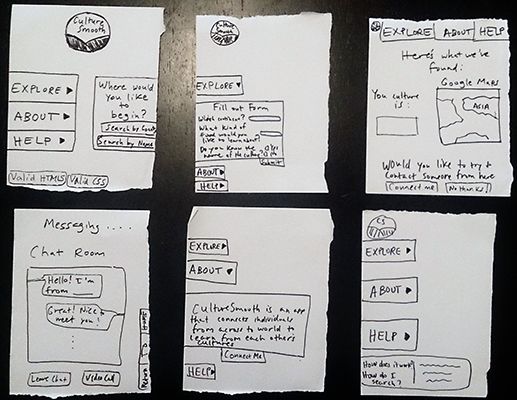 Culture
Smooth
EXPLORE
ABOUT
HELP
Where would
you like
to
begin?
Search by
Search by Name
Valid HTML5
Valid CSS
Culture
Smooth
EXPLORE
Fill out Form
What
What Kind of
food would you
like to learn about?
Do you know the
name of the culture?
Submit
ABOUT
HELP
EXPLORE
ABOUT
HELP
Here's what we've
found:
Google Maps
You culture
is:
ASIA
Would you like to try &
contact someone from here
Connect me
No thanks!
Messaging ....
Chat Room
Hello! I'm
from
Great! Nice to
meet you!
Leave Chat
Video Call
Return To Home
EXPLORE
ABOUT
CultureSmooth is an app
that connects individuals
from across to world to
learn from each other's
cultures
Connect Me
HELP
CS
EXPLORE
ABOUT
HELP
How does it work?
How do I
search?